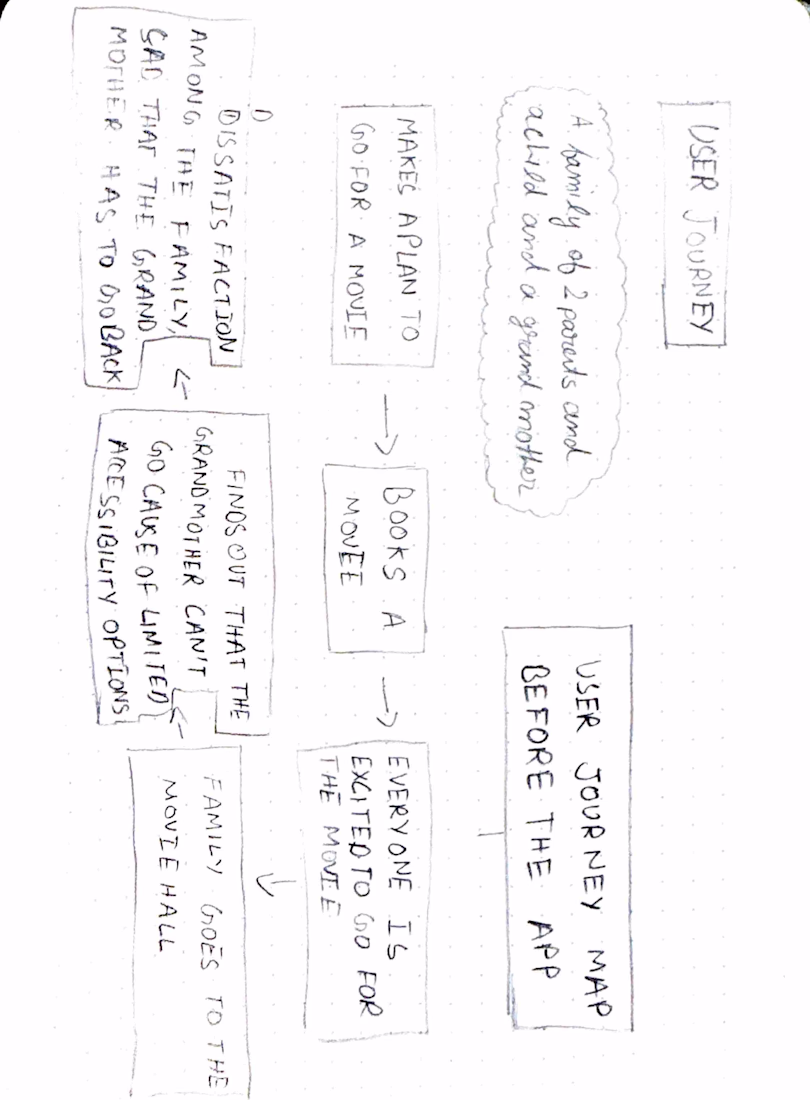 USER JOURNEY
A family of 2 parents and
a child and a grand mother
USER JOURNEY MAP
BEFORE THE APP
MAKES A PLAN TO
GO FOR A MOVIE
BOOKS A
MOVEE
EVERYONE IS
EXCITED TO GO FOR
THE MOVIE
FAMILY GOES TO THE
MOVIE HALL
FINDS OUT THAT THE
GRANDMOTHER CAN'T
GO CAUSE OF LIMITED
ACCESSIBILITY OPTIONS
D
DISSATISFACTION
AMONG THE FAMILY,
SAD THAT THE GRAND
MOTHER HAS TO GO BACK